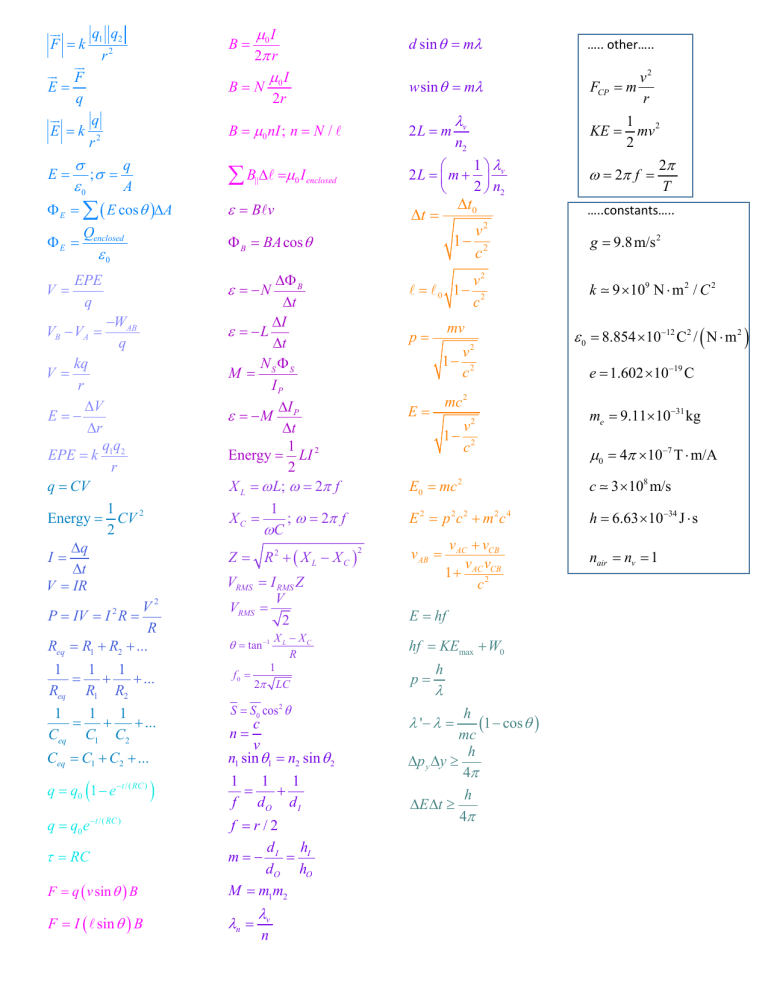 |F⃗| = k |q₁||q₂| / r²
E⃗ = F⃗ / q
|E⃗| = k |q| / r²
E = σ / ε₀ ; σ = q / A
Φ_E = ∑ (E cos θ)ΔA
Φ_E = Q_enclosed / ε₀
V = EPE / q
V_B − V_A = −W_AB / q
V = kq / r
E = − ΔV / Δr
EPE = k q₁q₂ / r
q = CV
Energy = 1/2 CV²
I = Δq / Δt
V = IR
P = IV = I²R = V² / R
R_eq = R₁ + R₂ + ...
1/R_eq = 1/R₁ + 1/R₂ + ...
1/C_eq = 1/C₁ + 1/C₂ + ...
C_eq = C₁ + C₂ + ...
q = q₀ (1 − e^(−t/(RC)))
q = q₀ e^(−t/(RC))
τ = RC
F = q (v sin θ) B
F = I (ℓ sin θ) B
B = μ₀I / 2πr
B = N μ₀I / 2r
B = μ₀nI ; n = N / ℓ
∑ B_||Δℓ = μ₀I_enclosed
ε = Bℓv
Φ_B = BA cos θ
ε = −N ΔΦ_B / Δt
ε = −L ΔI / Δt
M = N_SΦ_S / I_P
ε = −M ΔI_P / Δt
Energy = 1/2 LI²
X_L = ωL ; ω = 2π f
X_C = 1 / ωC ; ω = 2π f
Z = √(R² + (X_L − X_C)²)
V_RMS = I_RMS Z
V_RMS = V / √2
θ = tan⁻¹ (X_L − X_C) / R
f₀ = 1 / 2π√LC
S̅ = S̅₀ cos² θ
n = c / v
n₁ sin θ₁ = n₂ sin θ₂
1/f = 1/d_O + 1/d_I
f = r / 2
m = − d_I / d_O = h_I / h_O
M = m₁m₂
λ_n = λ_v / n
d sin θ = mλ
w sin θ = mλ
2L = m λ_v / n₂
2L = (m + 1/2) λ_v / n₂
Δt = Δt₀ / √(1 − v²/c²)
ℓ = ℓ₀ √(1 − v²/c²)
p = mv / √(1 − v²/c²)
E = mc² / √(1 − v²/c²)
E₀ = mc²
E² = p²c² + m²c⁴
v_AB = (v_AC + v_CB) / (1 + v_AC v_CB / c²)
E = hf
hf = KE_max + W₀
p = h / λ
λ' − λ = h/mc (1 − cos θ)
Δp_y Δy ≥ h / 4π
ΔEΔt ≥ h / 4π
….. other…..
F_CP = m v² / r
KE = 1/2 mv²
ω = 2π f = 2π / T
…..constants…..
g = 9.8 m/s²
k ≃ 9×10⁹ N·m² / C²
ε₀ = 8.854×10⁻¹² C² / (N·m²)
e = 1.602×10⁻¹⁹ C
m_e = 9.11×10⁻³¹ kg
μ₀ = 4π×10⁻⁷ T·m/A
c ≃ 3×10⁸ m/s
h = 6.63×10⁻³⁴ J·s
n_air = n_v = 1